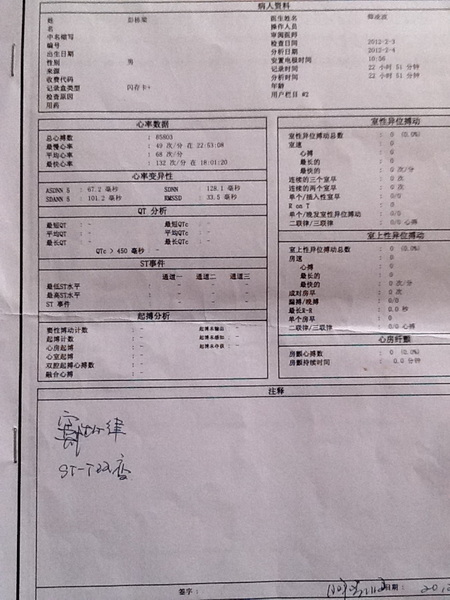 病人资料
姓
名
中名缩写
编号
出生日期
性别 男
来源
收费代码
记录盒类型 闪存卡+
检查原因
用药
医生姓名
操作人员
审阅医师
检查日间 2012-2-3
分析日期 2012-2-4
安置电极时间 10:56
记录时间 22 小时 51 分钟
分析时间 22 小时 51 分钟
年龄
用户栏目 #2
心率数据
总心搏数 : 85803
最慢心率 : 49 次/分 在 22:53:08
平均心率 : 68 次/分
最快心率 : 132 次/分 在 18:01:20
心率变异性
ASDNN 5 : 67.2 毫秒 SDNN : 128.1 毫秒
SDANN 5 : 101.2 毫秒 RMSSD : 33.5 毫秒
QT 分析
最短QT : - 最短QTc : -
平均QT : - 平均QTc : -
最长QT : - 最长QTc : -
QTc > 450 毫秒 : -
ST事件
通道一 通道二 通道三
最低ST水平 : - - -
最高ST水平 : - - -
ST 事件 : - - -
起搏分析
起搏计数 : -
心房起搏 : -
心室起搏 : -
双腔起搏心搏数 : -
融合心搏 : -
室性异位搏动
室性异位搏动总数 : 0 (0.0%)
室速 : 0
心搏 : 0
最长的 : 0
最快的 : 0 次/分
连续的三个室早 : 0 次
连续的两个室早 : 0 次
单个/插入性室早 : 0/0
R on T : 0
单个/晚发室性异位搏动 : 0/0
二联律/三联律 : 0/0 心搏
室上性异位搏动
室上性异位搏动总数 : 0 (0.0%)
房速 : 0
心搏 : 0
最长的 : 0
最快的 : 0 次/分
成对房早 : 0 次
漏搏/晚搏 : 0/0
最长R-R : 0.0 秒
单个房早 : 0
二联律/三联律 : 0/0 心搏
心房纤颤
房颤心搏数 : 0 (0.0%)
房颤持续时间 : 0.0 分钟
注释
窦性心律
ST-T改变
签字:
日期: